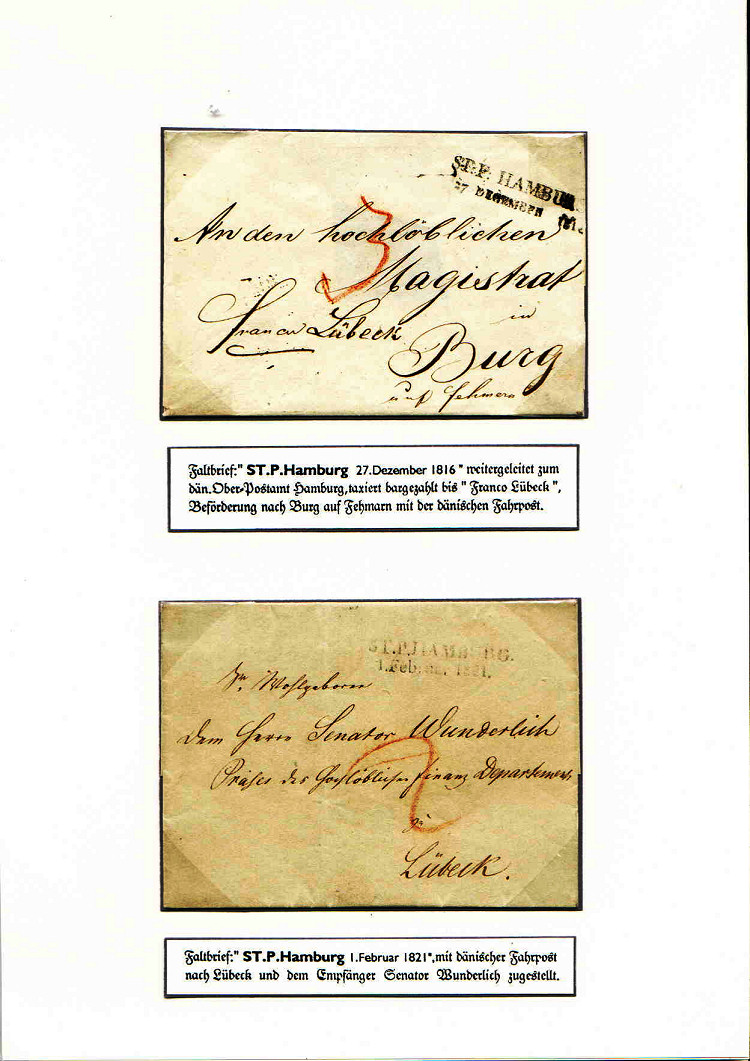 ST.P. HAMBU
27 DECEMBER
3
An den hochlöblichen
Magistrat
in
franco Lübeck
Burg
auf fehmern
Faltbrief:" ST.P.Hamburg 27.Dezember 1816 " weitergeleitet zum
dän.Ober-Postamt Hamburg,taxiert bargezahlt bis " Franco Lübeck ",
Beförderung nach Burg auf Fehmarn mit der dänischen Fahrpost.
ST.P.HAMBURG.
1.Februar 1821.
Sr. Wohlgeboren
dem Herrn Senator Wunderlich
Präses des Hochlöblichen Finanz Departements
zu
Lübeck.
Faltbrief:" ST.P.Hamburg 1.Februar 1821",mit dänischer Fahrpost
nach Lübeck und dem Empfänger Senator Wunderlich zugestellt.